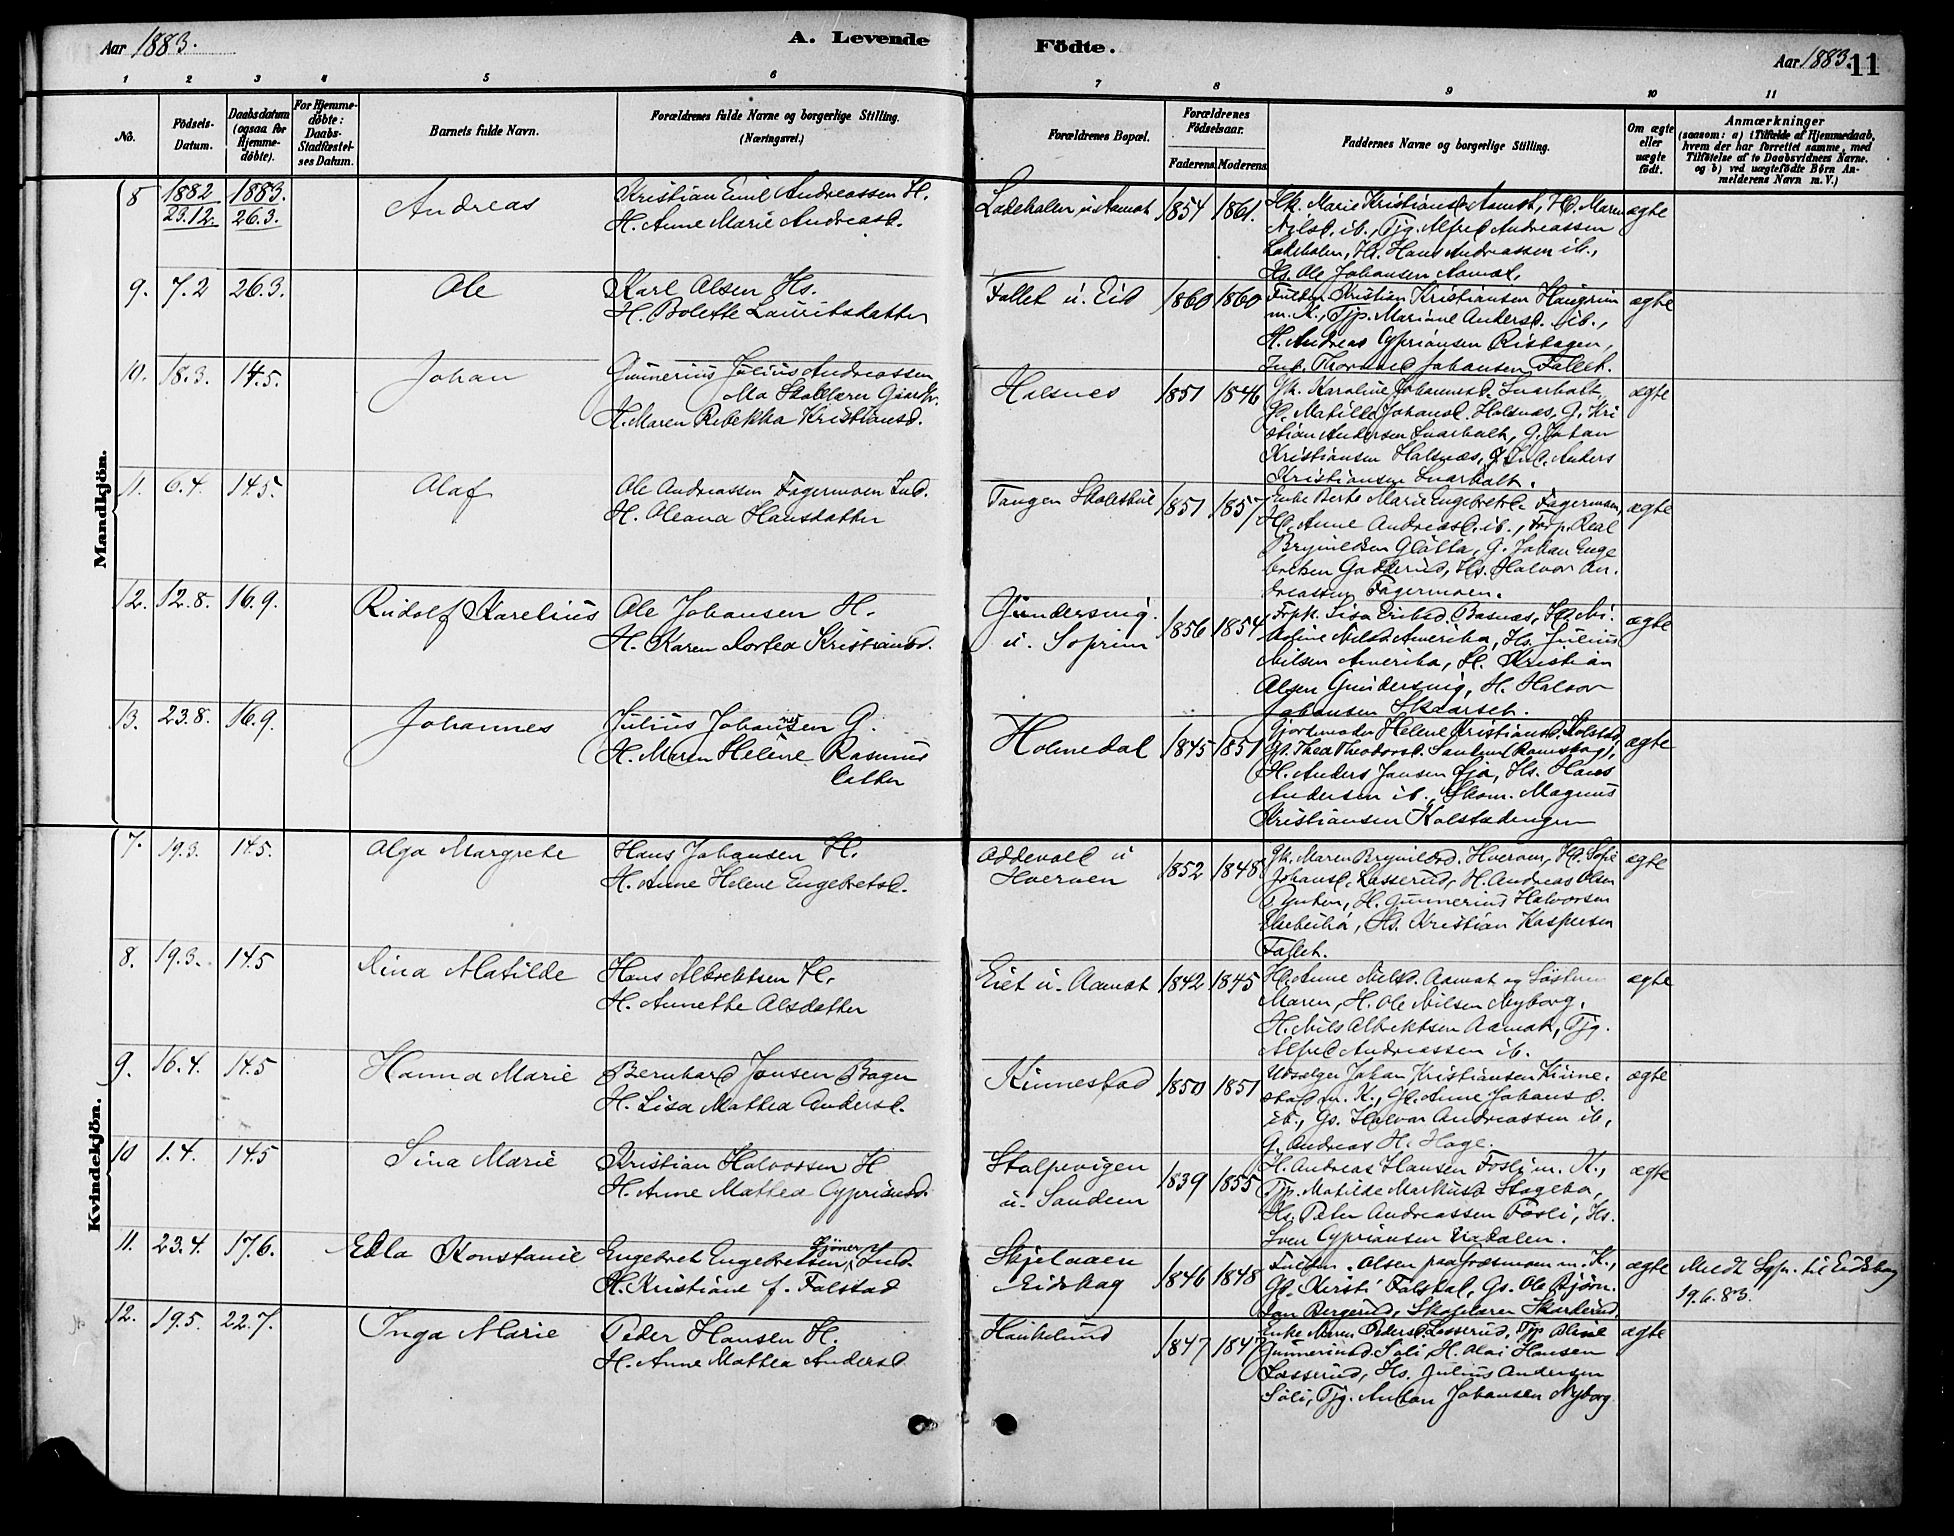 Aar 1883.
A. Levende
Födte.
Aar 1883.
11
1 2 3 4 5 6 7 8 9 10 11
No.
Födsels-Datum.
Daabsdatum (ogsaa for Hjemme-döbte).
For Hjemme-döbte: Daabs-Stadfæstel-ses Datum.
Barnets fulde Navn.
Forældrenes fulde Navne og borgerlige Stilling.
(Næringsvei.)
Forældrenes Bopæl.
Forældrenes Födselsaar.
Faderens. Moderens.
Faddernes Navne og borgerlige Stilling.
Om ægte eller uægte födt.
Anmærkninger
(saasom: a) i Tilfælde af Hjemmedaab, hvem der har forrettet samme, med Tilföielse af to Daabsvidners Navne. og b) ved uægtefödte Börn An-melderens Navn m. V.)
Mandkjön.
8 1882 23.12. 1883. 26.3. Andreas
Kristian Emil Andreassen H.
H. Anne Marie Andreasd.
Ladehalen u. Aamot 1854 1861.
Gk. Marie Kristiansd. Aamot, Hd. Maren
Nilsd. ib., Tjg. Alfred Andreassen
Ladehalen, Hs. Hans Andreassen ib.,
Hs. Ole Johansen Aamot.
ægte
9. 7.2 26.3. Ole
Karl Olsen Hs.
H. Bolette Lauritsdatter
Fallet u. Eid 1860 1860
Kristian Kristiansen Haugrim
m. K., Tjp. Mariane Andersd. ib.,
H. Andreas Cypriansen Rishagen,
Ind. Thorvald Johansen Fallet.
ægte
10. 18.3. 14.5. Johan
Gunnerius Julius Andreassen
Skollærer
H. Maren Rebekka Kristiansd.
Halsnes 1851 1846
Gk. Karoline Johannesd. Snarholt,
Gd. Matilde Johansd. Halsnæs, G. Kri
stian Andersen Snarholt, G. Johan
Kristiansen Halsnæs, Ind. Anders
Kristiansen Snarholt.
ægte
11. 6.4. 14.5. Olaf
Ole Andreassen Fagermoen Ind.
H. Oleana Hansdatter
Tangen Skotskil 1851 1857
Enke Berte Marie Engebretsd. Fagermoen,
Hd. Anne Andreasd. ib., Forp. Real
Brynildsen Glötta, G. Johan Enge
bretsen Gadderud, Hs. Halvor An
dreassen Fagermoen.
ægte
12. 12.8. 16.9. Rudolf Karelius
Ole Johansen H.
H. Karen Dortea Kristiansd.
Gundersvig
u. Soprim 1856 1854
Frpk. Lisa Eriksd. Basnæs, Hd. Ni
koline Nilsd. Amerika, Hs. Julius
Nilsen Amerika, H. Kristian
Olsen Gundersvig, H. Halvor
Johansen Skaarset.
ægte
13. 23.8. 16.9. Johannes
Julius Johannesen G.
H. Maren Helene Rasmus
datter
Holmedal 1845 1851
Gjordemoder Helene Kristiansd. Kolstad,
Gd. Thea Theodorsd. Sanden (Rømskog),
H. Anders Jansen Øja, Hs. Hans
Andersen ib., Skom. Magnus
Kristiansen Kolstadengen
ægte
Kvindekjön.
7. 19.3. 14.5. Olga Margrete
Hans Johansen H.
H. Anne Helene Engebretsd.
Oddevold u
Hverven 1852 1848
Gk. Maren Brynildsd. Hverven, Hd. Sofie
Johansd. Lasserud, H. Andreas Olsen
H. Gunnerius Halvorsen
Hs. Kristian Kaspersen
Fallet.
ægte
8. 19.3. 14.5 Dina Matilde
Hans Albrektsen H.
H. Annethe Olsdatter
Eiet u. Aamot 1842 1845
Hd. Anne Nilsd. Aamot og Søstren
Maren, H. Ole Nilsen Nyborg,
H. Nils Albrektsen Aamot, Tjg.
Alfred Andreassen ib.
ægte
9. 16.4. 14.5 Hanna Marie
Bernhard Jonsen Bager
H. Lisa Mathea Andersd.
Kinnestad 1850 1851
Udsalger Johan Kristiansen Kinne
stad m. K., Gd. Anne Johansd.
ib., Gs. Halvor Andreassen ib,
G. Andreas H. Hage.
ægte
10 1.4. 14.5 Sina Marie
Kristian Halvorsen H
H. Anne Mathea Cypriansd.
Stolpevigen
u. Sandem 1839 1855
H. Andreas Hansen Fosli m. K.,
Tjp. Matilde Markusd.
Hs. Peter Andreassen Fosli, Hs.
Sven Cypriansen
ægte
11. 23.4. 17.6. Edla Konstanse
Engebret Engebretsen Ind.
H. Kristiane f. Falstad
Skjelvaaen
Eidskog 1846 1848
Olsen paa Græsmoen m. K.,
Gd. Kirsti Falstad, Gs. Ole Bjørn
sen Bergerud, Skollærer Skarderud.
ægte Meldt Sgpr. til Eidskog
19.6.83.
12. 19.5. 22.7. Inga Marie
Peder Hansen H.
H. Anne Mathea Andersd
Haukelund 1847 1847
Enke Maren Pedersd. Lasserud, Tjp. Oline
Gunneriusd. Soli, H. Olai Hansen
Lasserud, Hs. Julius Andersen
Soli, Tjg. Anton Johansen Nyborg.
ægte